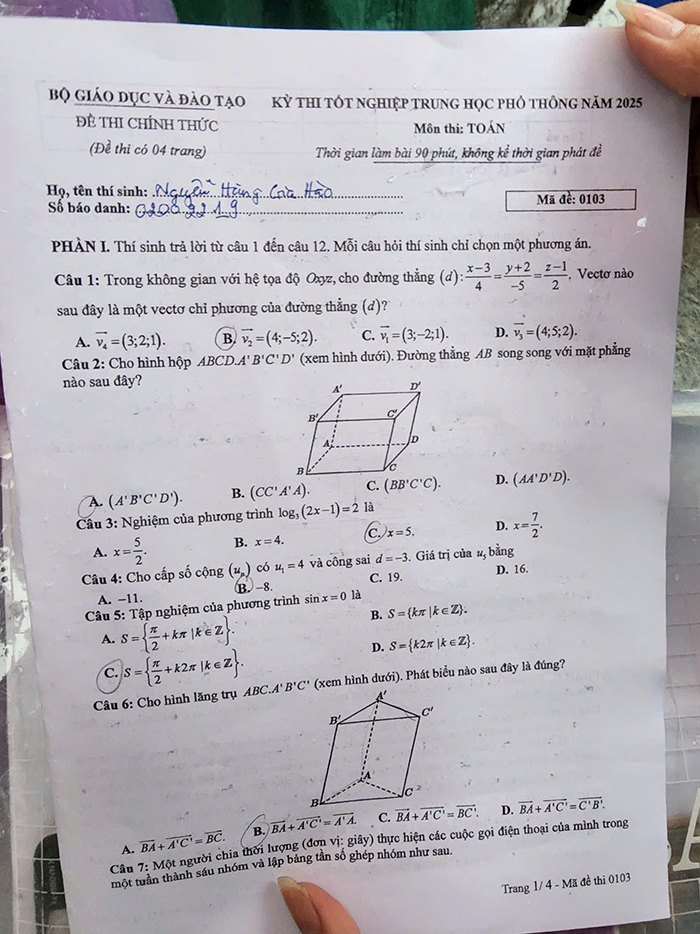 BỘ GIÁO DỤC VÀ ĐÀO TẠO
ĐỀ THI CHÍNH THỨC
(Đề thi có 04 trang)
KỲ THI TỐT NGHIỆP TRUNG HỌC PHỔ THÔNG NĂM 2025
Môn thi: TOÁN
Thời gian làm bài 90 phút, không kể thời gian phát đề
Họ, tên thí sinh: Nguyễn Hùng Gia Hào
Số báo danh: 02002219
Mã đề: 0103
PHẦN I. Thí sinh trả lời từ câu 1 đến câu 12. Mỗi câu hỏi thí sinh chỉ chọn một phương án.
Câu 1: Trong không gian với hệ tọa độ Oxyz, cho đường thẳng (d): (x−3)/4 = (y+2)/−5 = (z−1)/2. Vectơ nào
sau đây là một vectơ chỉ phương của đường thẳng (d)?
A. v₄ = (3;2;1). B. v₂ = (4;−5;2). C. v₁ = (3;−2;1). D. v₃ = (4;5;2).
Câu 2: Cho hình hộp ABCD.A'B'C'D' (xem hình dưới). Đường thẳng AB song song với mặt phẳng
nào sau đây?
A' D'
B' C'
A D
B C
A. (A'B'C'D'). B. (CC'A'A). C. (BB'C'C). D. (AA'D'D).
Câu 3: Nghiệm của phương trình log₃(2x−1) = 2 là
A. x = 5/2. B. x = 4. C. x = 5. D. x = 7/2.
Câu 4: Cho cấp số cộng (uₙ) có u₁ = 4 và công sai d = −3. Giá trị của u₅ bằng
A. −11. B. −8. C. 19. D. 16.
Câu 5: Tập nghiệm của phương trình sin x = 0 là
A. S = {π/2 + kπ | k ∈ ℤ}. B. S = {kπ | k ∈ ℤ}.
C. S = {π/2 + k2π | k ∈ ℤ}. D. S = {k2π | k ∈ ℤ}.
Câu 6: Cho hình lăng trụ ABC.A'B'C' (xem hình dưới). Phát biểu nào sau đây là đúng?
A'
B' C'
A
B C
A. BA + A'C' = BC. B. BA + A'C' = A'A. C. BA + A'C' = BC'. D. BA + A'C' = C'B'.
Câu 7: Một người chia thời lượng (đơn vị: giây) thực hiện các cuộc gọi điện thoại của mình trong
một tuần thành sáu nhóm và lập bảng tần số ghép nhóm như sau.
Trang 1/4 - Mã đề thi 0103